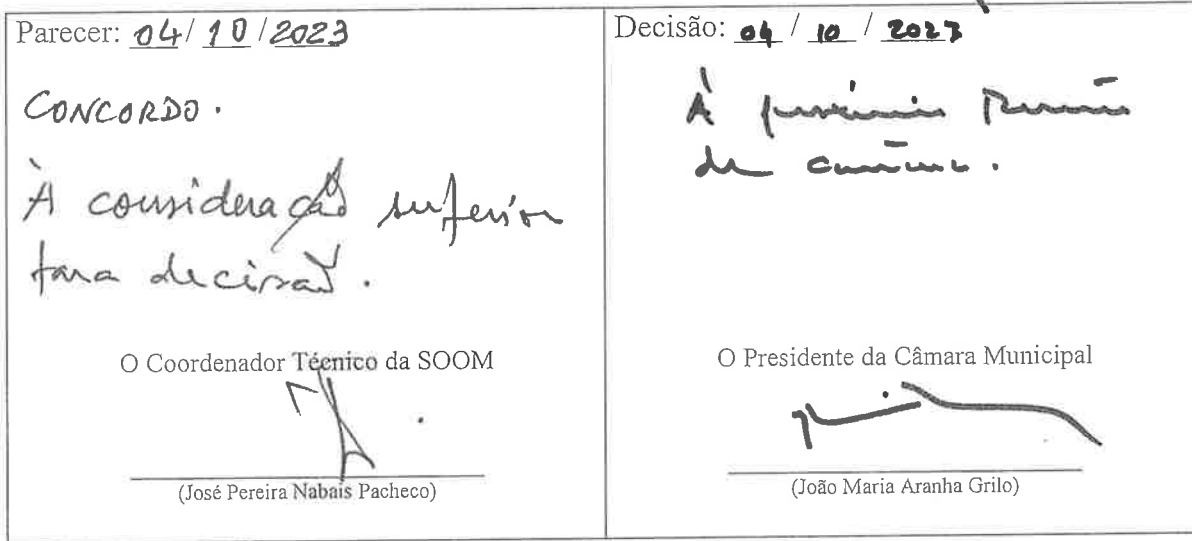 Parecer: 04/10/2023
CONCORDO.
À consideração superior
para decisão.
O Coordenador Técnico da SOOM
(José Pereira Nabais Pacheco)
Decisão: 04 / 10 / 2023
À próxima Reunião
de Câmara.
O Presidente da Câmara Municipal
(João Maria Aranha Grilo)